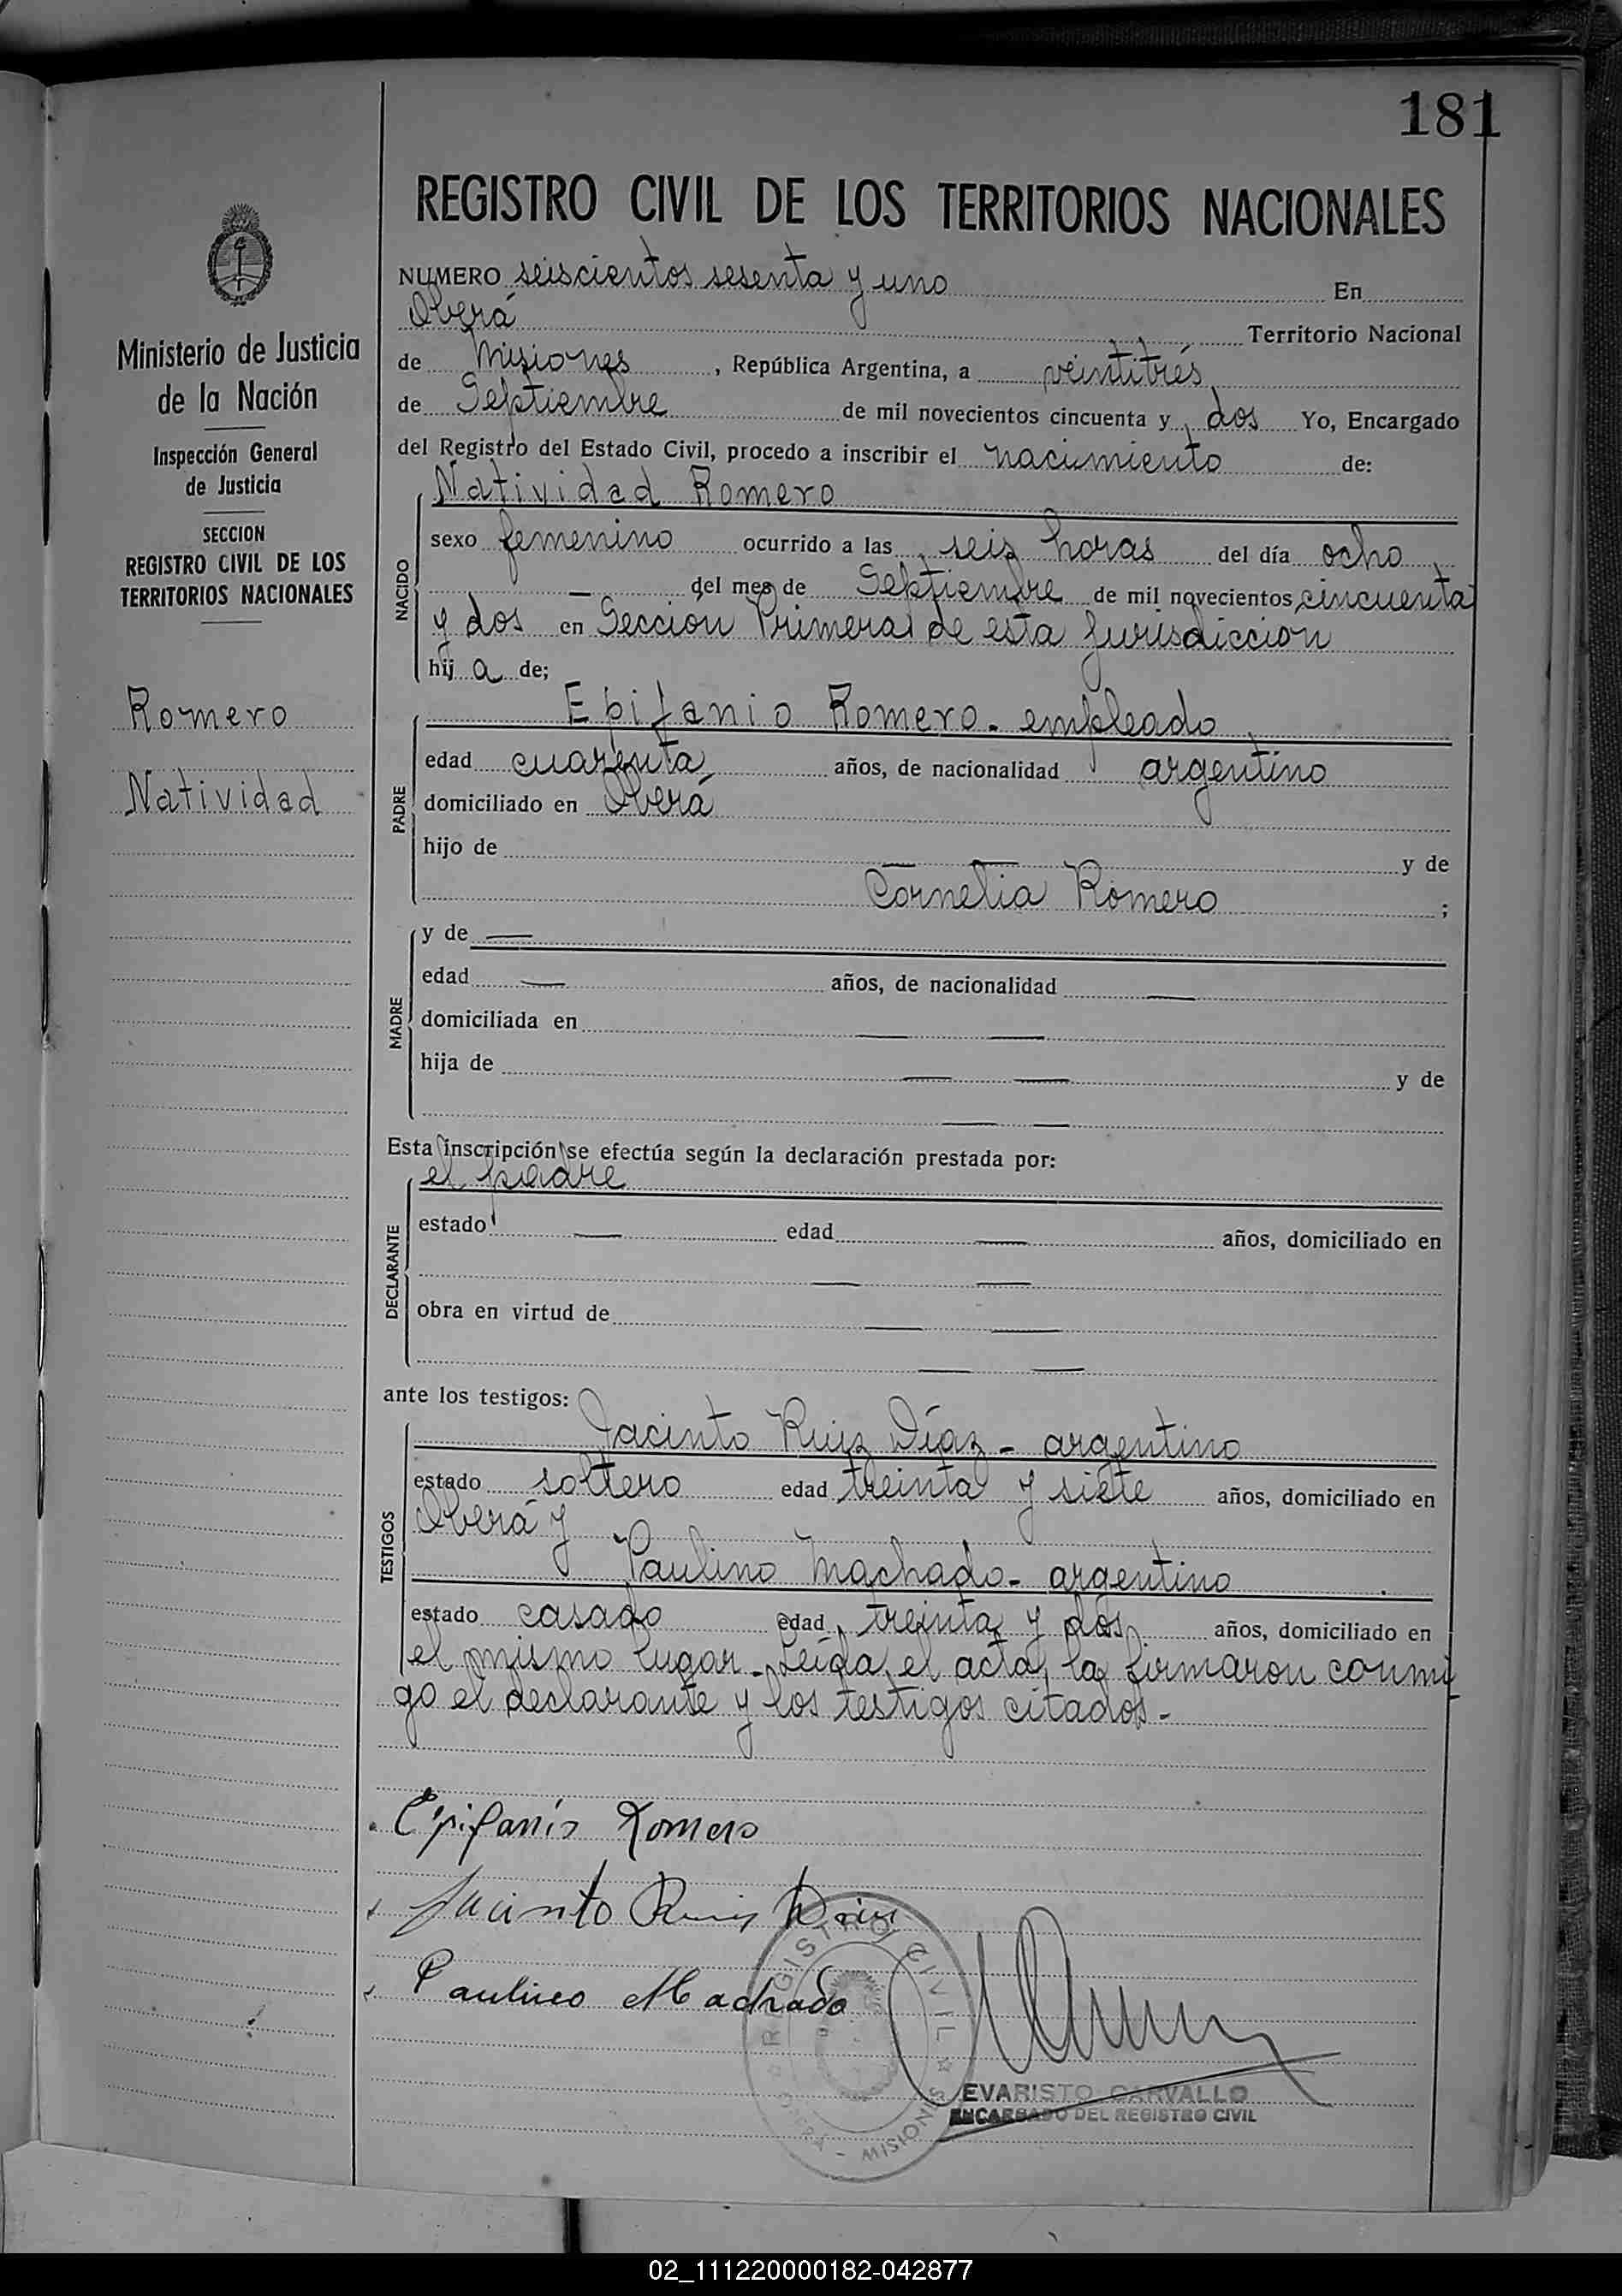 181
REGISTRO CIVIL DE LOS TERRITORIOS NACIONALES
Ministerio de Justicia
de la Nación
Inspección General
de Justicia
SECCION
REGISTRO CIVIL DE LOS
TERRITORIOS NACIONALES
Romero
Natividad
NUMERO seiscientos sesenta y uno En
Oberá Territorio Nacional
de Misiones, República Argentina, a veintitrés
de Septiembre de mil novecientos cincuenta y dos Yo, Encargado
del Registro del Estado Civil, procedo a inscribir el nacimiento de:
NACIDO
Natividad Romero
sexo femenino ocurrido a las seis horas del día ocho
— del mes de Septiembre de mil novecientos cincuenta
y dos en Sección Primera de esta Jurisdicción
hij a de;
PADRE
Epifanio Romero - empleado
edad cuarenta años, de nacionalidad argentino
domiciliado en Oberá
hijo de — — y de
Cornelia Romero ;
MADRE
y de —
edad — años, de nacionalidad —
domiciliada en — —
hija de — — y de
— —
Esta inscripción se efectúa según la declaración prestada por:
DECLARANTE
el padre
estado — edad — años, domiciliado en
— —
obra en virtud de — —
— —
ante los testigos:
TESTIGOS
Jacinto Ruiz Díaz - argentino
estado soltero edad treinta y siete años, domiciliado en
Oberá y
Paulino Machado - argentino
estado casado edad treinta y dos años, domiciliado en
el mismo lugar - Leída el acta, la firmaron conmi
go el declarante y los testigos citados -
Epifanio Romero
Jacinto Ruiz Diaz
Paulino Machado
REGISTRO CIVIL
OBERA - MISIONES
EVARISTO CARVALLO
ENCARGADO DEL REGISTRO CIVIL
02_111220000182-042877